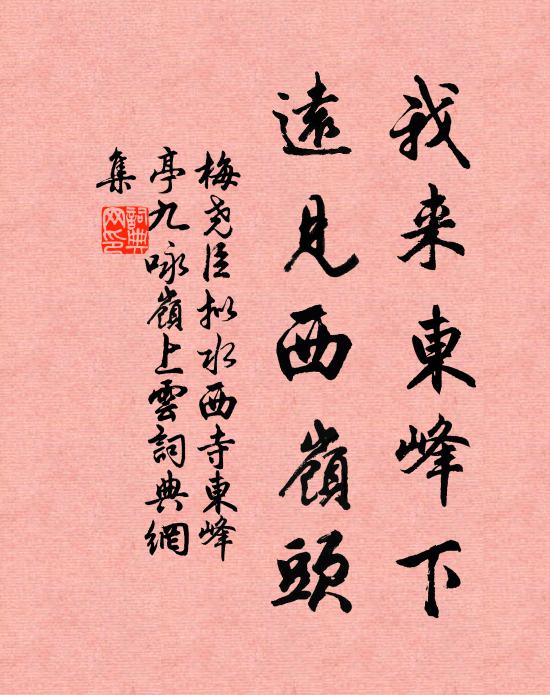 我来東峰下
遠見西嶺頭
梅堯臣擬水西寺東峰
亭九咏嶺上雲詞典網
集
詞典
网印